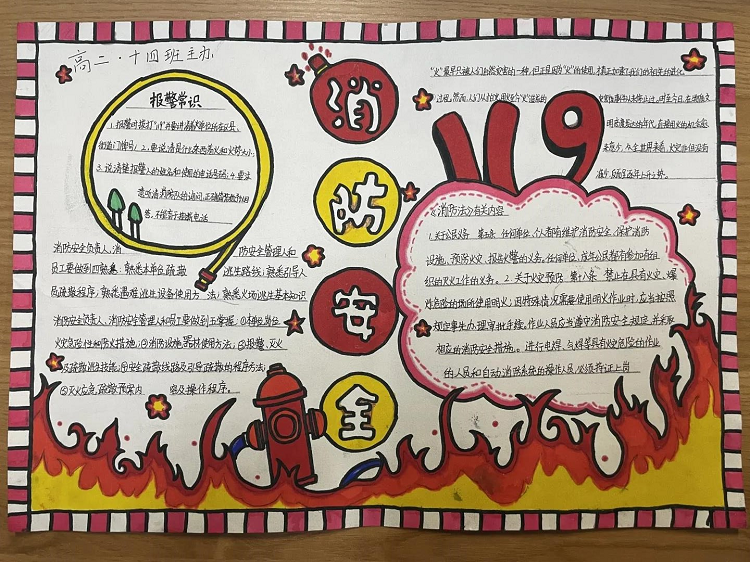 高二·十四班主办
消
防
安
全
119
报警常识
1、报警时拨打"119"
街道门牌号; 2、要说清是什么东西着火和火势大小;
3、说清楚报警人的姓名和所用的电话号码; 4、要注
意听清消防队的询问,正确简洁
答,不能
消防安全负责人、消 防安全管理人和
员工要做到四熟悉:熟悉本单位疏散 逃生路线;熟悉引导人
员疏散程序;熟悉遇难逃生设备使用方 法;熟悉火场逃生基本知识
消防安全负责人、消防安全管理人和员工要做到五掌握:①本单位岗位
火灾危险性和防火措施;②消防设施器材使用方法;③报警、灭火
及疏散逃生技能;④安全疏散线路及引导疏散的程序方法;
⑤灭火应急疏散预案内 容及操作程序。
"火"最早只被人们 的一种,但正是因为"火"的使用,才真正 了我们的祖先的进化
过程。然而,人们从
消防法沙有关内容
1.关于公民义务 第五条 任何单位、个人都有维护消防安全、保护消防
设施、预防火灾、报告火警的义务。任何单位、成年公民都有参加有组
织的灭火工作的义务。2.关于火灾预防 第十八条 禁止在具有火灾、爆
炸危险的场所使用明火;因特殊情况需要使用明火作业时,应当按照
规定事先办理审批手续。作业人员应当遵守消防安全规定,并采取
相应的消防安全措施。进行电焊、气焊等具有火灾危险的作业
的人员和自动消防系统的操作人员,必须持证上岗